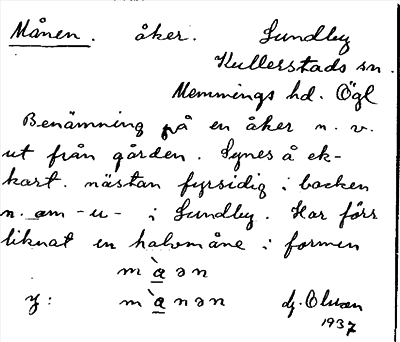 Månen. åker. Sundby
Kullerstads sn.
Memmings hd. Ögl
Benämning på en åker n. v.
ut från gården. Synes å ek-
kart. nästan fyrsidig i backen
n. om - u - i Sundby. Har förr
liknat en halvmåne i formen
m à ə n
y: m à n ə n dj. Olsson
1937